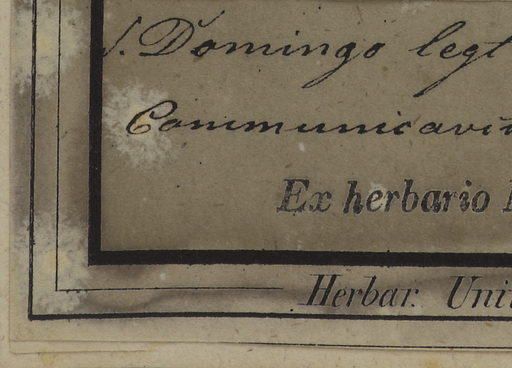 S. Domingo legt
Communicavit
Ex herbario
Herbar. Univ